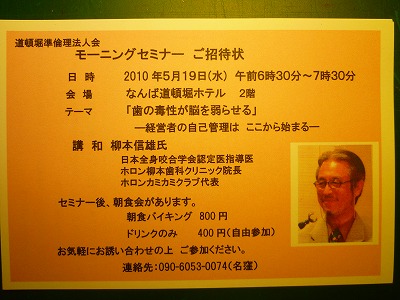 道頓堀準倫理法人会
モーニングセミナー ご招待状
日 時 2010年5月19日(水) 午前6時30分～7時30分
会 場 なんば道頓堀ホテル 2階
テーマ 「歯の毒性が脳を弱らせる」
―経営者の自己管理は ここから始まる―
講 和 柳本信雄氏
日本全身咬合学会認定医指導医
ホロン柳本歯科クリニック院長
ホロンカミカミクラブ代表
セミナー後、朝食会があります。
朝食バイキング 800円
ドリンクのみ 400円(自由参加)
お気軽にお誘い合わせの上 ご参加ください。
連絡先:090-6053-0074(名窪)